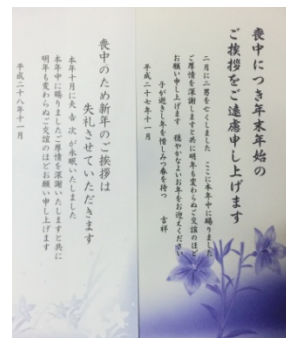 喪中につき年末年始の
ご挨拶をご遠慮申し上げます
二月に二男を亡くしました ここに本年中に賜りました
ご厚情を深謝しますと共に明年も変わらぬご交誼のほど
お願い申し上げます 穏やかなよいお年をお迎えください
子が逝きし年を惜しみつ春を待つ 吉祥
平成二十七年十一月
喪中のため新年のご挨拶は
失礼させていただきます
本年十月に夫 吉 次 が永眠いたしました
本年中に賜りましたご厚情を深謝いたしますと共に
明年も変わらぬご交誼のほどお願い申し上げます
平成二十八年十一月